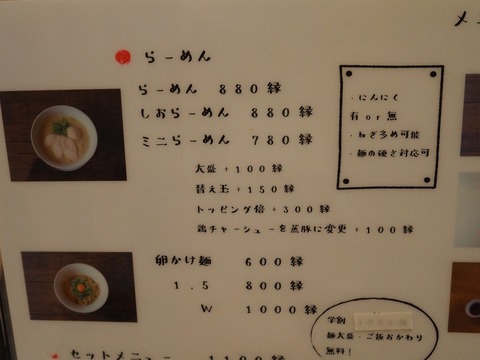 メ
らーめん
らーめん 880縁
しおらーめん 880縁
ミニらーめん 780縁
大盛+100縁
替え玉+150縁
トッピング倍+300縁
鶏チャーシューを蒸豚に変更+100縁
・にんにく
有or無
・ねぎ多め可能
・麺の硬さ対応可
卵かけ麺 600縁
1.5 800縁
W 1000縁
学割
麺大盛・ご飯おかわり
無料!
セットメニュー 1100縁